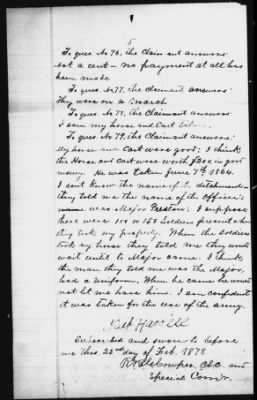 5
To ques. No. 76. the Claimant answers:
Not a cent - no payment at all has
been made.
To ques. No. 77. the Claimant answers:
They were on a march.
To ques. No. 78. the Claimant answers:
I saw my horse and Cart
To ques. No. 79. the Claimant answers:
My horse and Cart were good; I think
the Horse and cart were worth in good
money. He was taken June 7th 1864.
I don't know the name of the detachment -
they told me the name of the Officer's
was Major. I suppose
there were 100 or 150 Soldiers present when
they took my property. When the soldiers
took my horse they told me they would
wait until to Major came. I think
the man they told me was the Major,
had a uniform, When he came he would
not let me have him. I am confident
it was taken for the use of the army.
Subscribed and sworn to before
me this 22nd day of Feb. 1878.
C.C.C. and
Special Com'r.